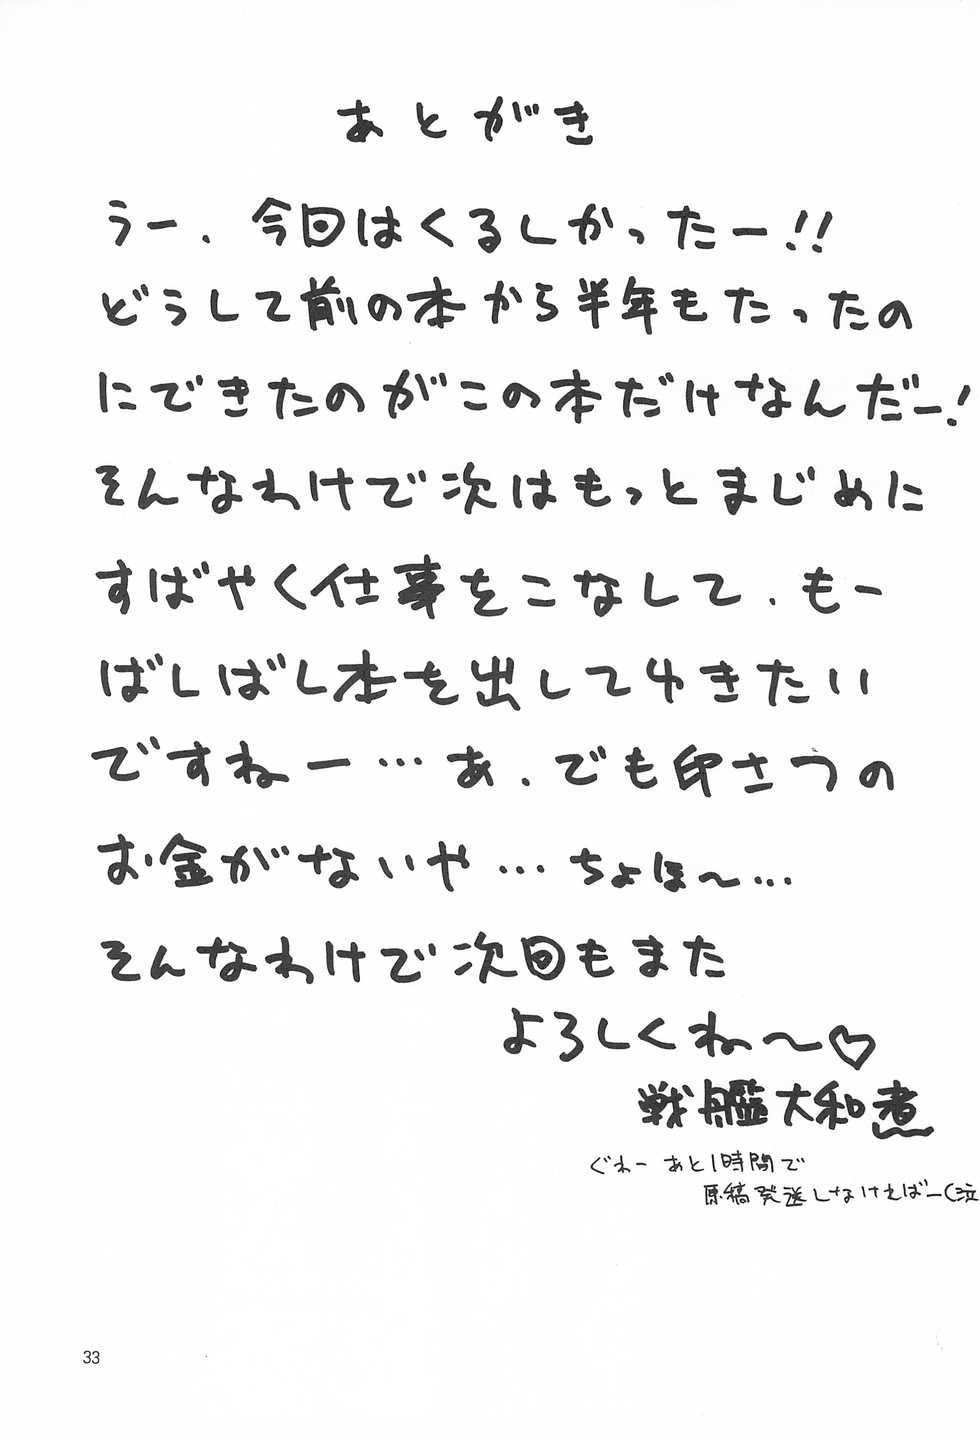 あとがき
うー、今回はくるしかったー!!
どうして前の本から半年もたったの
にできたのがこの本だけなんだー!
そんなわけで次はもっとまじめに
すばやく仕事をこなして、もー
ばしばし本を出してゆきたい
ですねー…あ、でも印さつの
お金がないや…ちょほ～…
そんなわけで次回もまた
よろしくね～♡
戦艦大和煮
ぐわー あと1時間で
原稿発送しなければー(泣
33